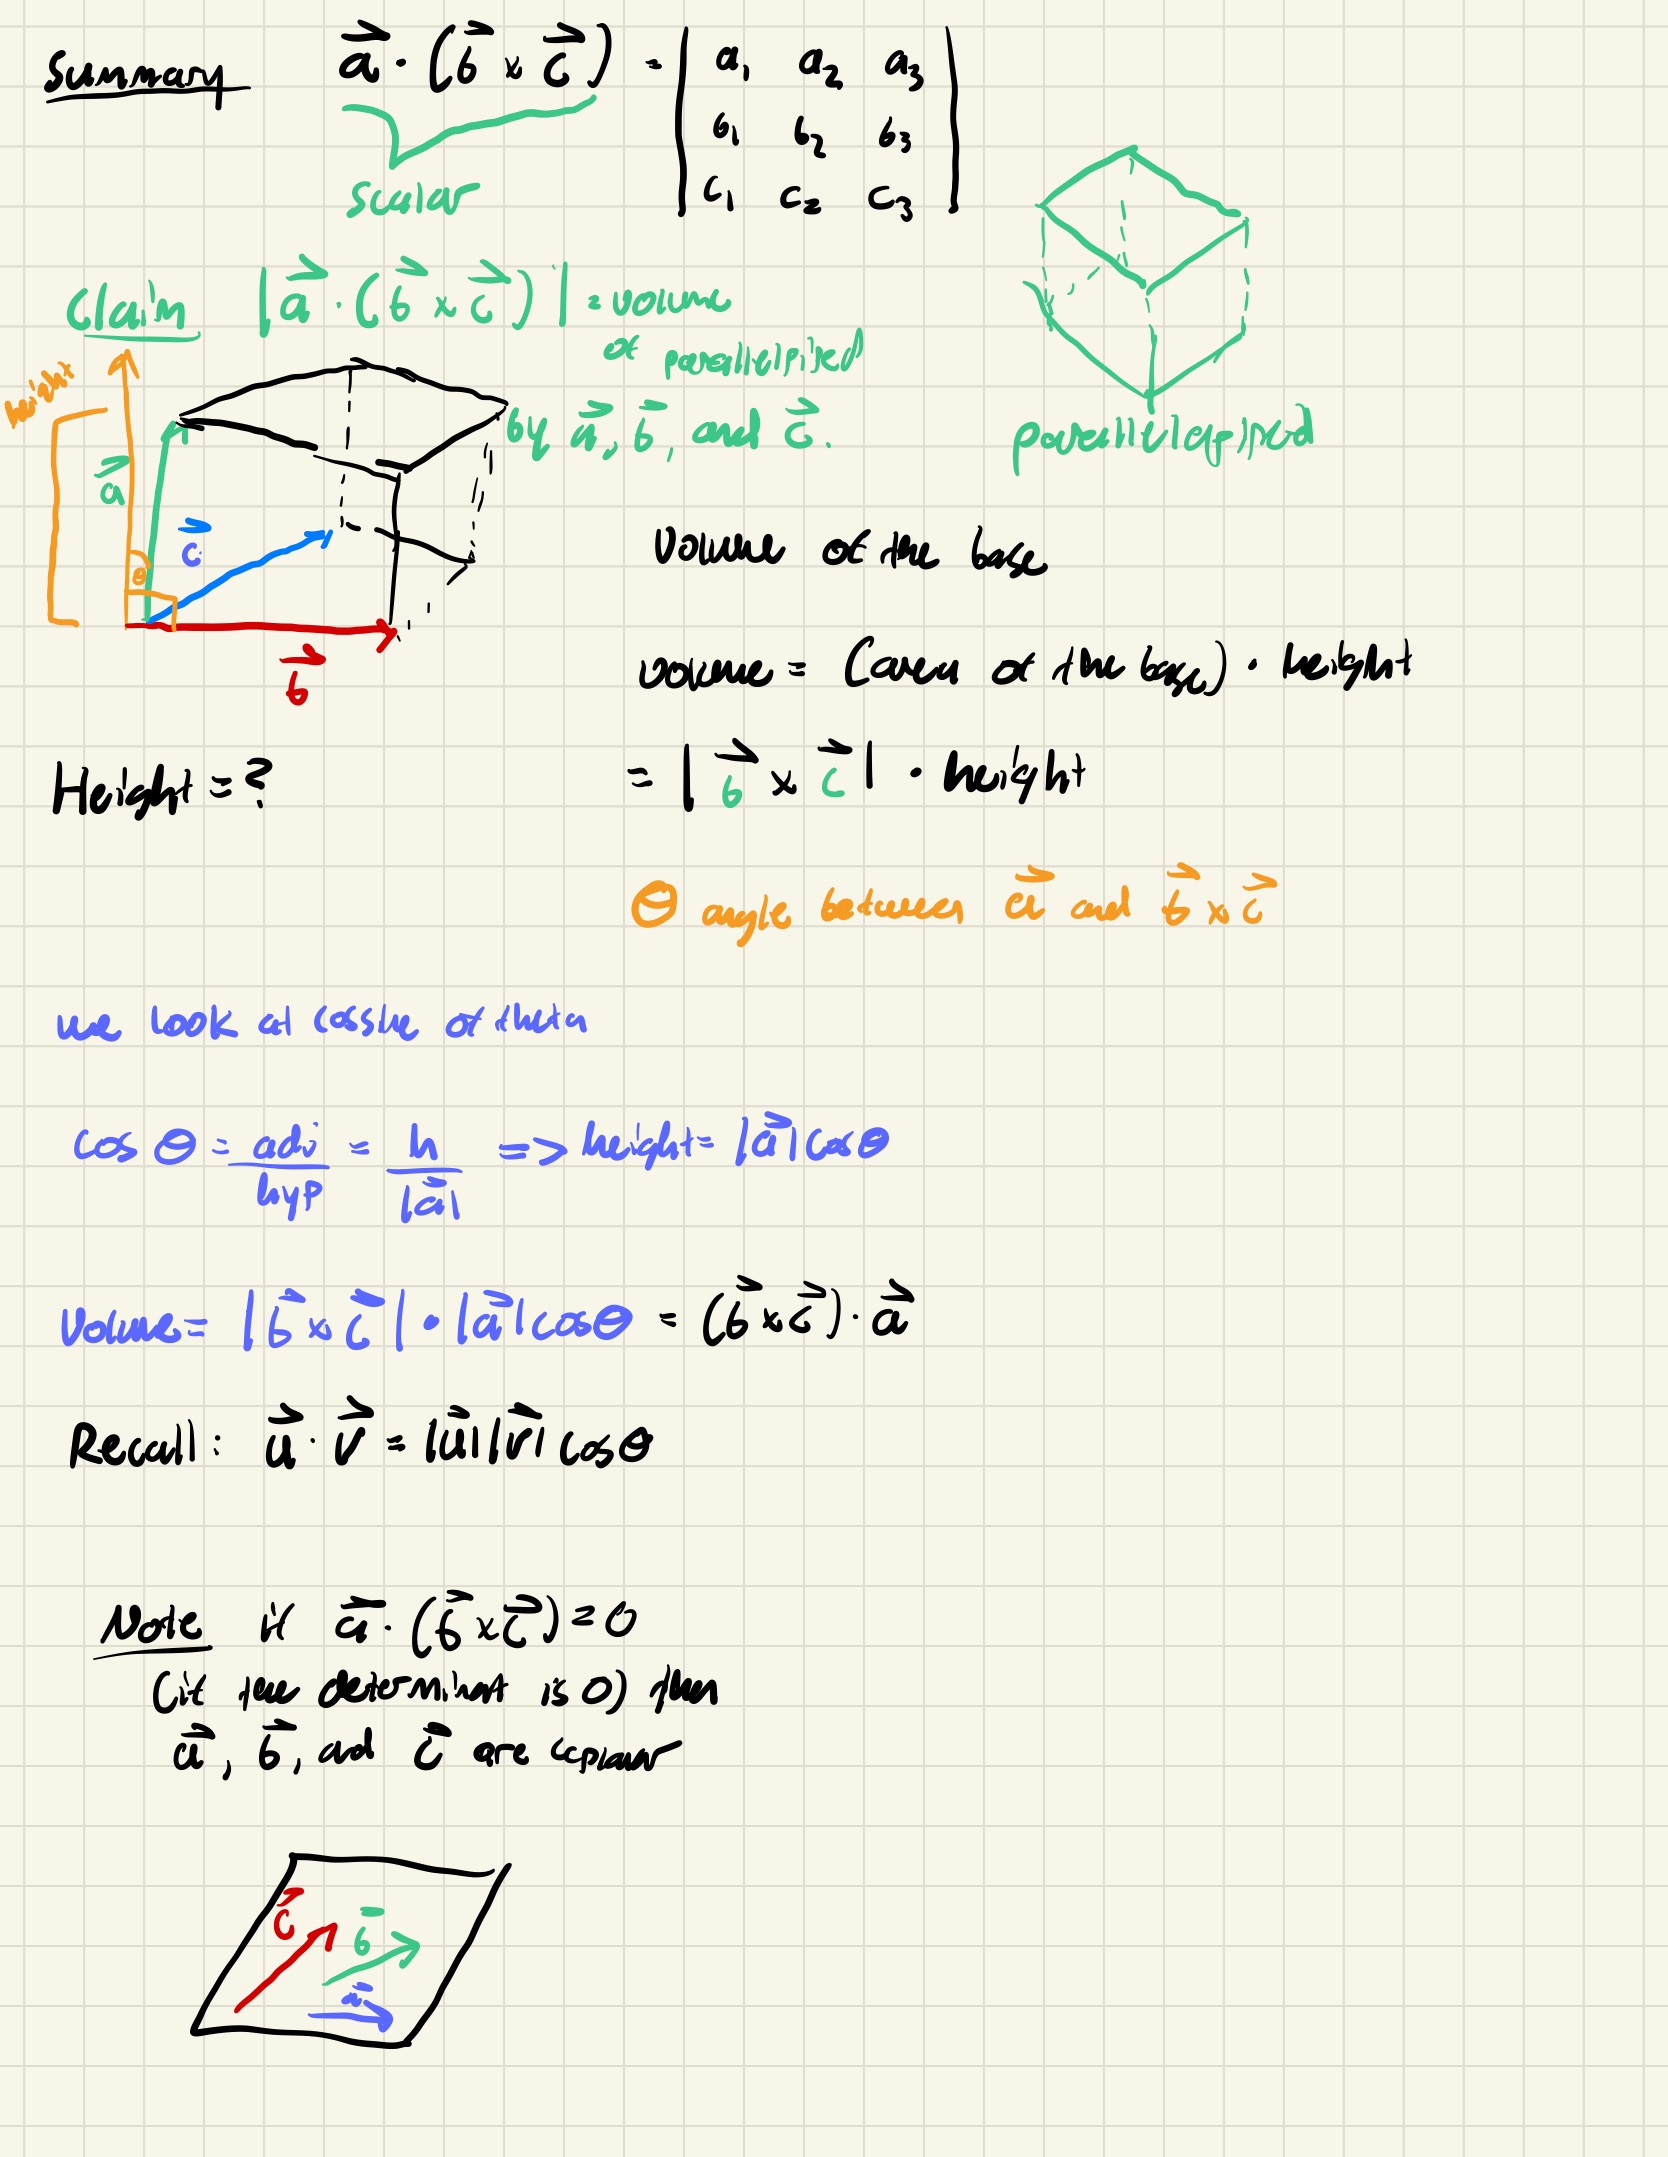 Summary a⃗ · (b⃗ × c⃗) = | a₁ a₂ a₃ |
| b₁ b₂ b₃ |
| c₁ c₂ c₃ |
scalar
Claim |a⃗ · (b⃗ × c⃗)| = volume
of parallelpiped
by a⃗, b⃗, and c⃗.
parallelepiped
height
a⃗
c⃗
θ
b⃗
Volume of the base
volume = (area of the base) · height
Height = ?
= |b⃗ × c⃗| · height
θ angle between a⃗ and b⃗ × c⃗
we look at cosine of theta
cos θ = adj/hyp = h/|a⃗| => height = |a⃗| cos θ
Volume = |b⃗ × c⃗| · |a⃗| cos θ = (b⃗ × c⃗) · a⃗
Recall: u⃗ · v⃗ = |u⃗||v⃗| cos θ
Note if a⃗ · (b⃗ × c⃗) = 0
(if the determinat is 0) then
a⃗, b⃗, and c⃗ are coplanar
c⃗
b⃗
a⃗